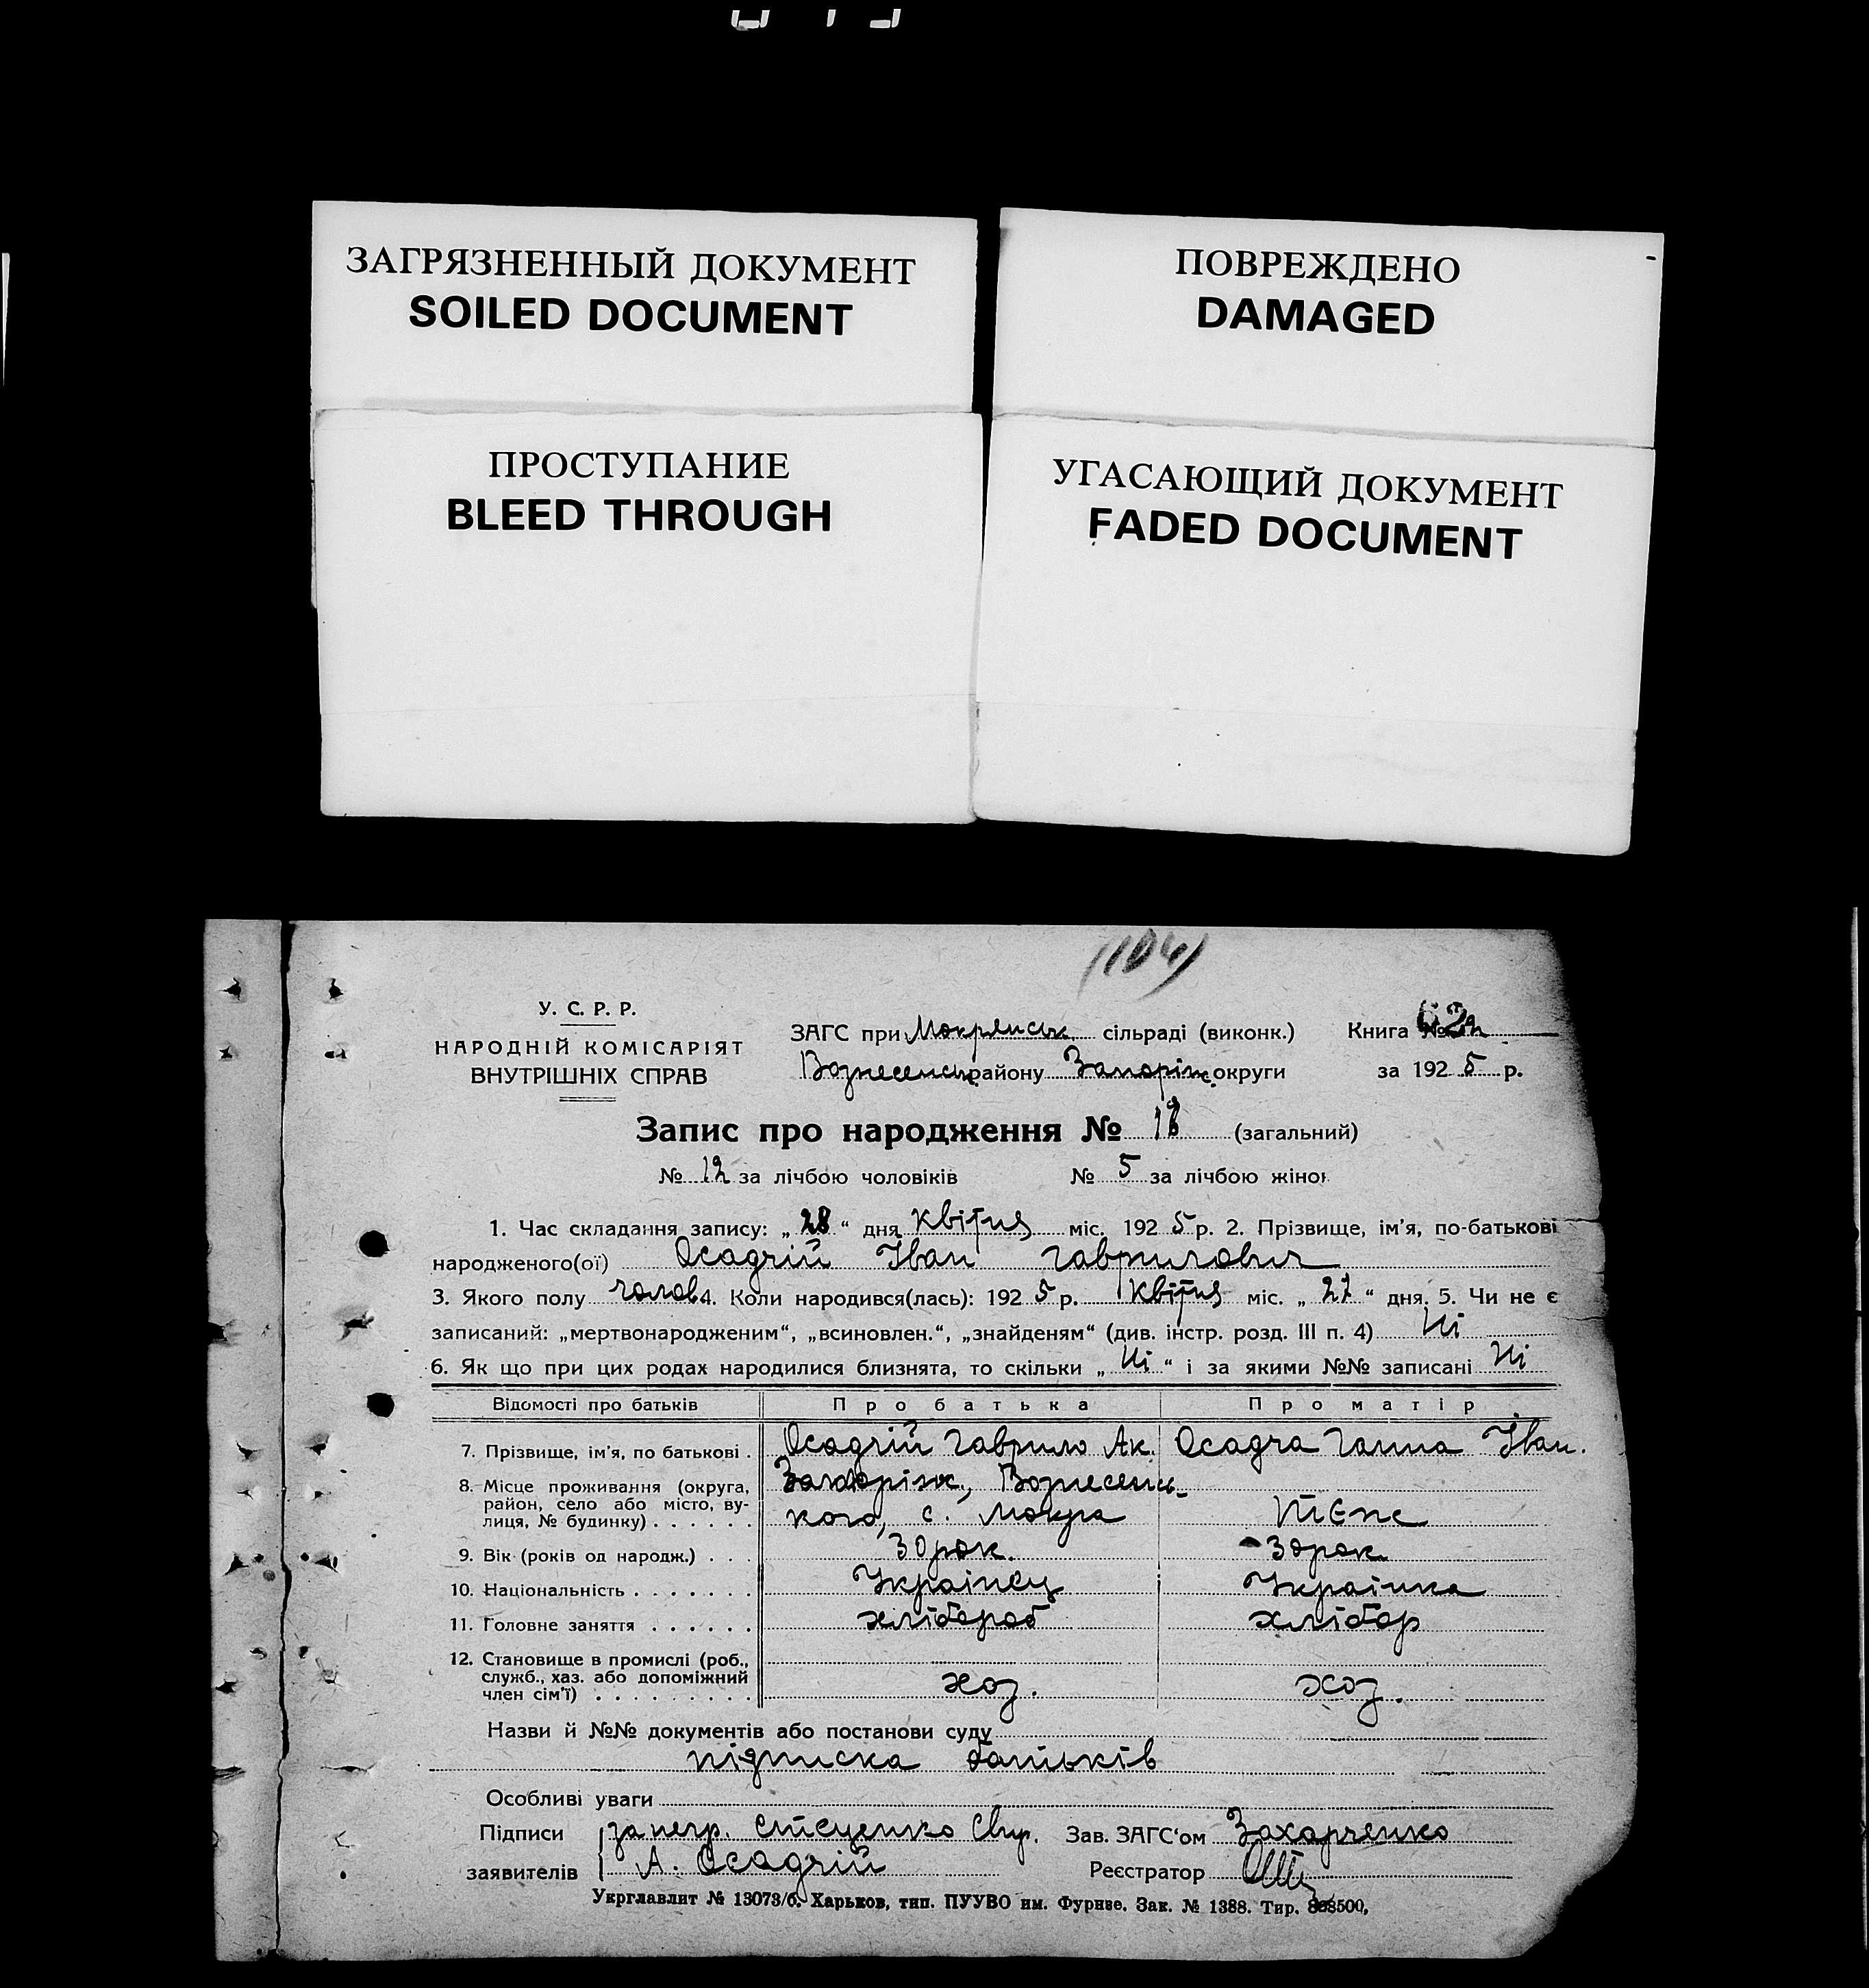 ЗАГРЯЗНЕННЫЙ ДОКУМЕНТ
SOILED DOCUMENT
ПОВРЕЖДЕНО
DAMAGED
ПРОСТУПАНИЕ
BLEED THROUGH
УГАСАЮЩИЙ ДОКУМЕНТ
FADED DOCUMENT
(104)
У. С. Р. Р.
НАРОДНІЙ КОМІСАРІЯТ
ВНУТРІШНІХ СПРАВ
ЗАГС при Мокрянськ. сільраді (виконк.) Книга №
Вознесенськ. району Запоріж. округи за 1925 р.
Запис про народження № (загальний)
№ 12 за лічбою чоловіків № 5 за лічбою жінок
1. Час складання запису: „28“ дня квітня міс. 1925 р. 2. Прізвище, ім'я, по-батькові
народженого(ої) Осадчій Іван Гаврилович
3. Якого полу чолов. 4. Коли народився(лась): 1925 р. квітня міс. „27“ дня. 5. Чи не є
записаний: „мертвонародженим“, „всиновлен.“, „знайденям“ (див. інстр. розд. III п. 4) Ні
6. Як що при цих родах народилися близнята, то скільки „Ні“ і за якими №№ записані Ні
Відомості про батьків Про батька Про матір
7. Прізвище, ім'я, по батькові . Осадчій Гаврило Ак. Осадча Ганна Іван.
8. Місце проживання (округа, Запоріж., Вознесенсь-
район, село або місто, ву-
лиця, № будинку) . . . . . . кого, с. Мокра
9. Вік (років од народж.) . . . 30 рок. 30 рок.
10. Національність . . . . . . . Українец Українка
11. Головне заняття . . . . . . хлібороб хлібор
12. Становище в промислі (роб.,
служб., хаз. або допоміжний
член сім'ї) . . . . . . . . . хоз. хоз.
Назви й №№ документів або постанови суду
підписка батьків
Особливі уваги
Підписи за негр. Стеценко Зав. ЗАГС'ом Захарченко
заявителів А. Осадчій Реєстратор
Укрглавлит № 13073/б. Харьков, тип. ПУУВО им. Фрунзе. Зак. № 1388. Тир.